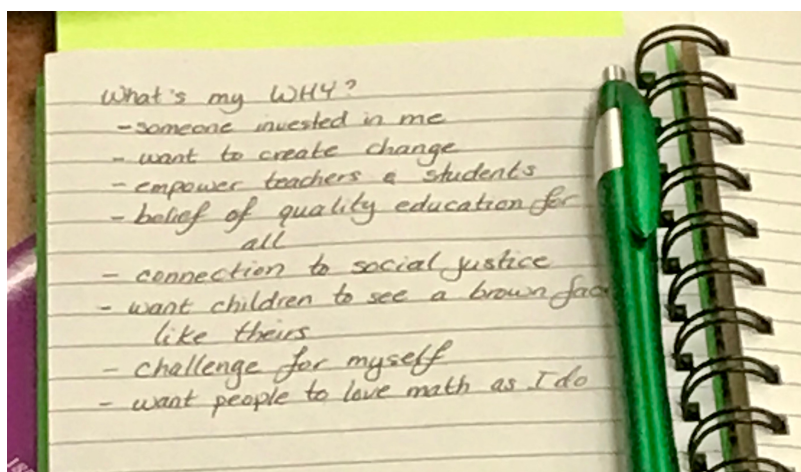 What's my WHY?
- someone invested in me
- want to create change
- empower teachers & students
- belief of quality education for
all
- connection to social justice
- want children to see a brown fac
like theirs
- challenge for myself
- want people to love math as I do